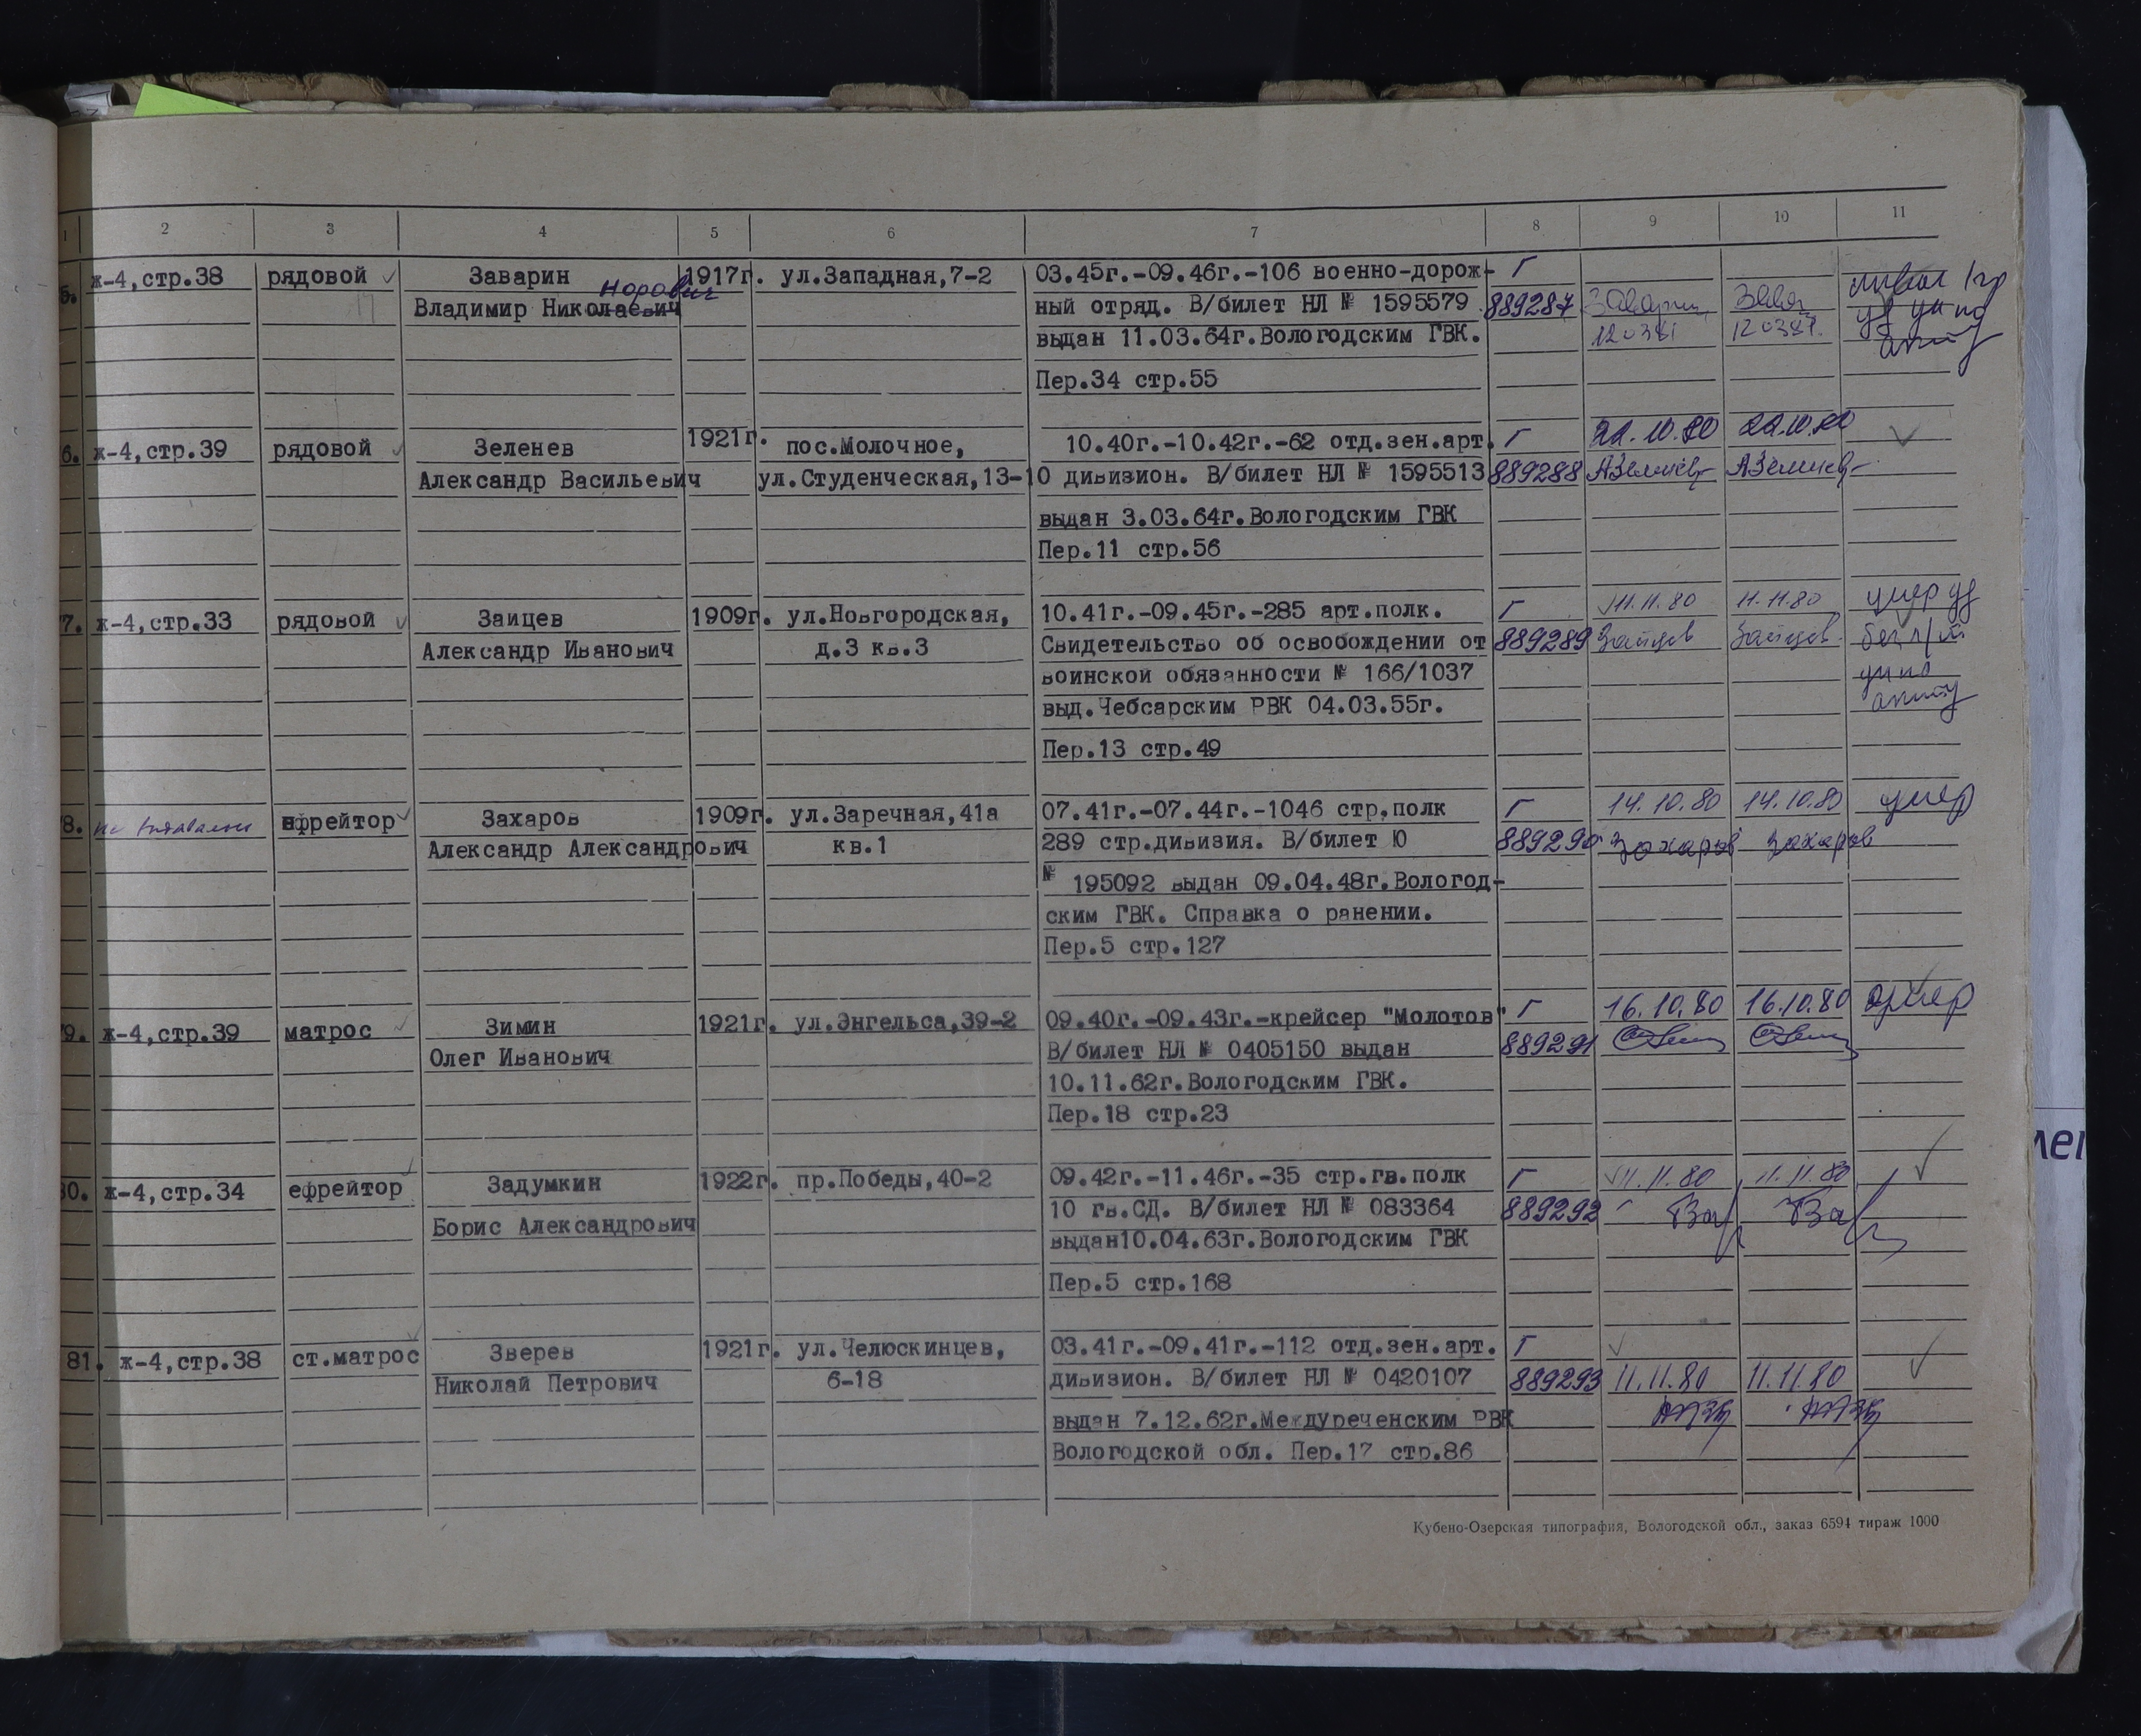 1 2 3 4 5 6 7 8 9 10 11
5. ж-4,стр.38 рядовой Заварин 1917г. ул.Западная,7-2 03.45г.-09.46г.-106 военно-дорож- Г
норович
Владимир Николаевич ный отряд. В/билет НЛ № 1595579 889287
выдан 11.03.64г.Вологодским ГВК. 120381 120381.
Пер.34 стр.55
6. ж-4,стр.39 рядовой Зеленев 1921г. пос.Молочное, 10.40г.-10.42г.-62 отд.зен.арт. Г 22.10.80 22.10.80
Александр Васильевич ул.Студенческая,13-10 дивизион. В/билет НЛ № 1595513 889288
выдан 3.03.64г.Вологодским ГВК
Пер.11 стр.56
7. ж-4,стр.33 рядовой Заицев 1909г. ул.Новгородская, 10.41г.-09.45г.-285 арт.полк. Г 11.11.80 11.11.80 умер уд
Александр Иванович д.3 кв.3 Свидетельство об освобождении от 889289 Зайцев Зайцев.
воинской обязанности № 166/1037
выд.Чебсарским РВК 04.03.55г.
Пер.13 стр.49
8. ефрейтор Захаров 1909г. ул.Заречная,41а 07.41г.-07.44г.-1046 стр.полк Г 14.10.80 14.10.80 умер
Александр Александрович кв.1 289 стр.дивизия. В/билет Ю 889290 Захаров Захаров
№ 195092 выдан 09.04.48г.Вологод-
ским ГВК. Справка о ранении.
Пер.5 стр.127
9. ж-4,стр.39 матрос Зимин 1921г. ул.Энгельса,39-2 09.40г.-09.43г.-крейсер "Молотов" Г 16.10.80 16.10.80 умер
Олег Иванович В/билет НЛ № 0405150 выдан 889291
10.11.62г.Вологодским ГВК.
Пер.18 стр.23
80. ж-4,стр.34 ефрейтор Задумкин 1922г. пр.Победы,40-2 09.42г.-11.46г.-35 стр.гв.полк Г 11.11.80 11.11.80
Борис Александрович 10 гв.СД. В/билет НЛ № 083364 889292
выдан10.04.63г.Вологодским ГВК
Пер.5 стр.168
81. ж-4,стр.38 ст.матрос Зверев 1921г. ул.Челюскинцев, 03.41г.-09.41г.-112 отд.зен.арт. Г
Николай Петрович 6-18 дивизион. В/билет НЛ № 0420107 889293 11.11.80 11.11.80
выдан 7.12.62г.Междуреченским РВК
Вологодской обл. Пер.17 стр.86
Кубено-Озерская типография, Вологодской обл., заказ 6594 тираж 1000